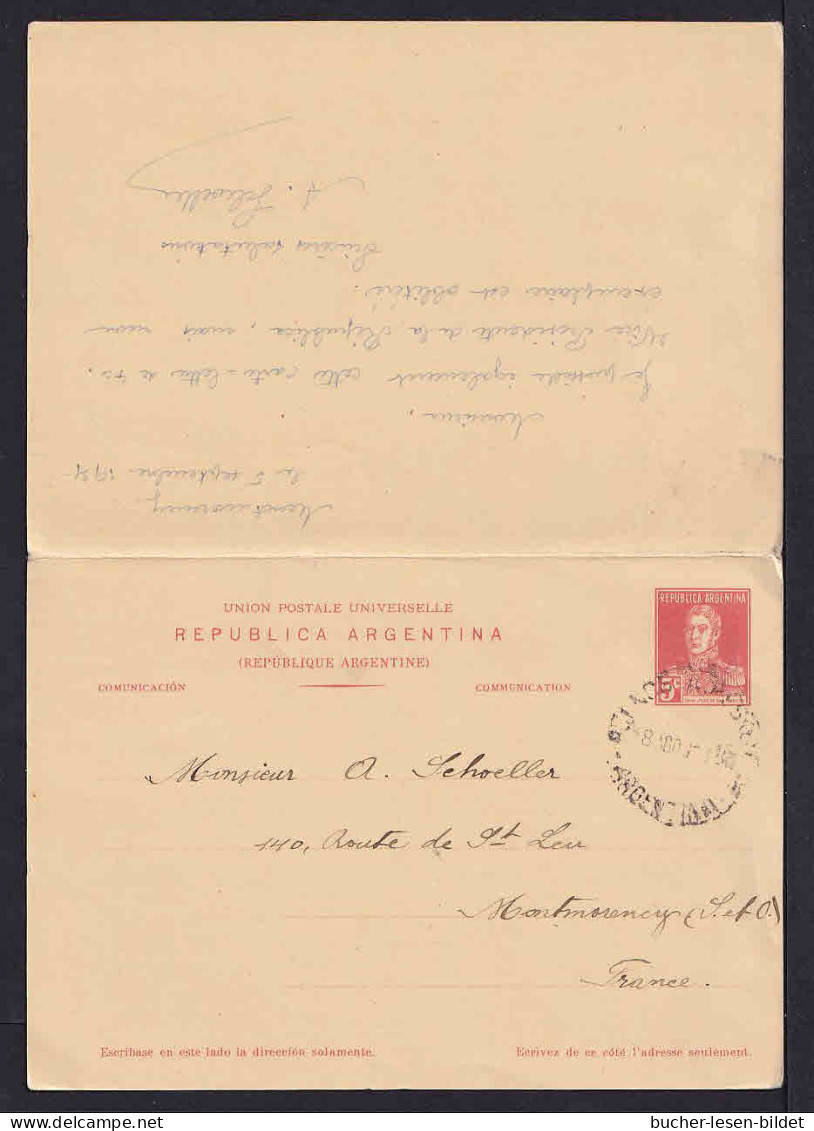 Montmorency
le 5 septembre 19
Monsieur,
Je possède également cette carte-lettre de
Vice Présidente de la République, mais mon
exemplaire est oblitéré.
Sincères salutations
A. Schoeller
UNION POSTALE UNIVERSELLE
REPUBLICA ARGENTINA
(REPÚBLIQUE ARGENTINE)
COMUNICACIÓN
COMMUNICATION
REPUBLICA ARGENTINA
5c
ARGENTINA
Monsieur A. Schoeller
140, Route de St Leu
Montmorency (S. et O.)
France.
Escríbase en este lado la dirección solamente.
Ecrivez de ce côté l'adresse seulement.
bucher-lesen-bildet